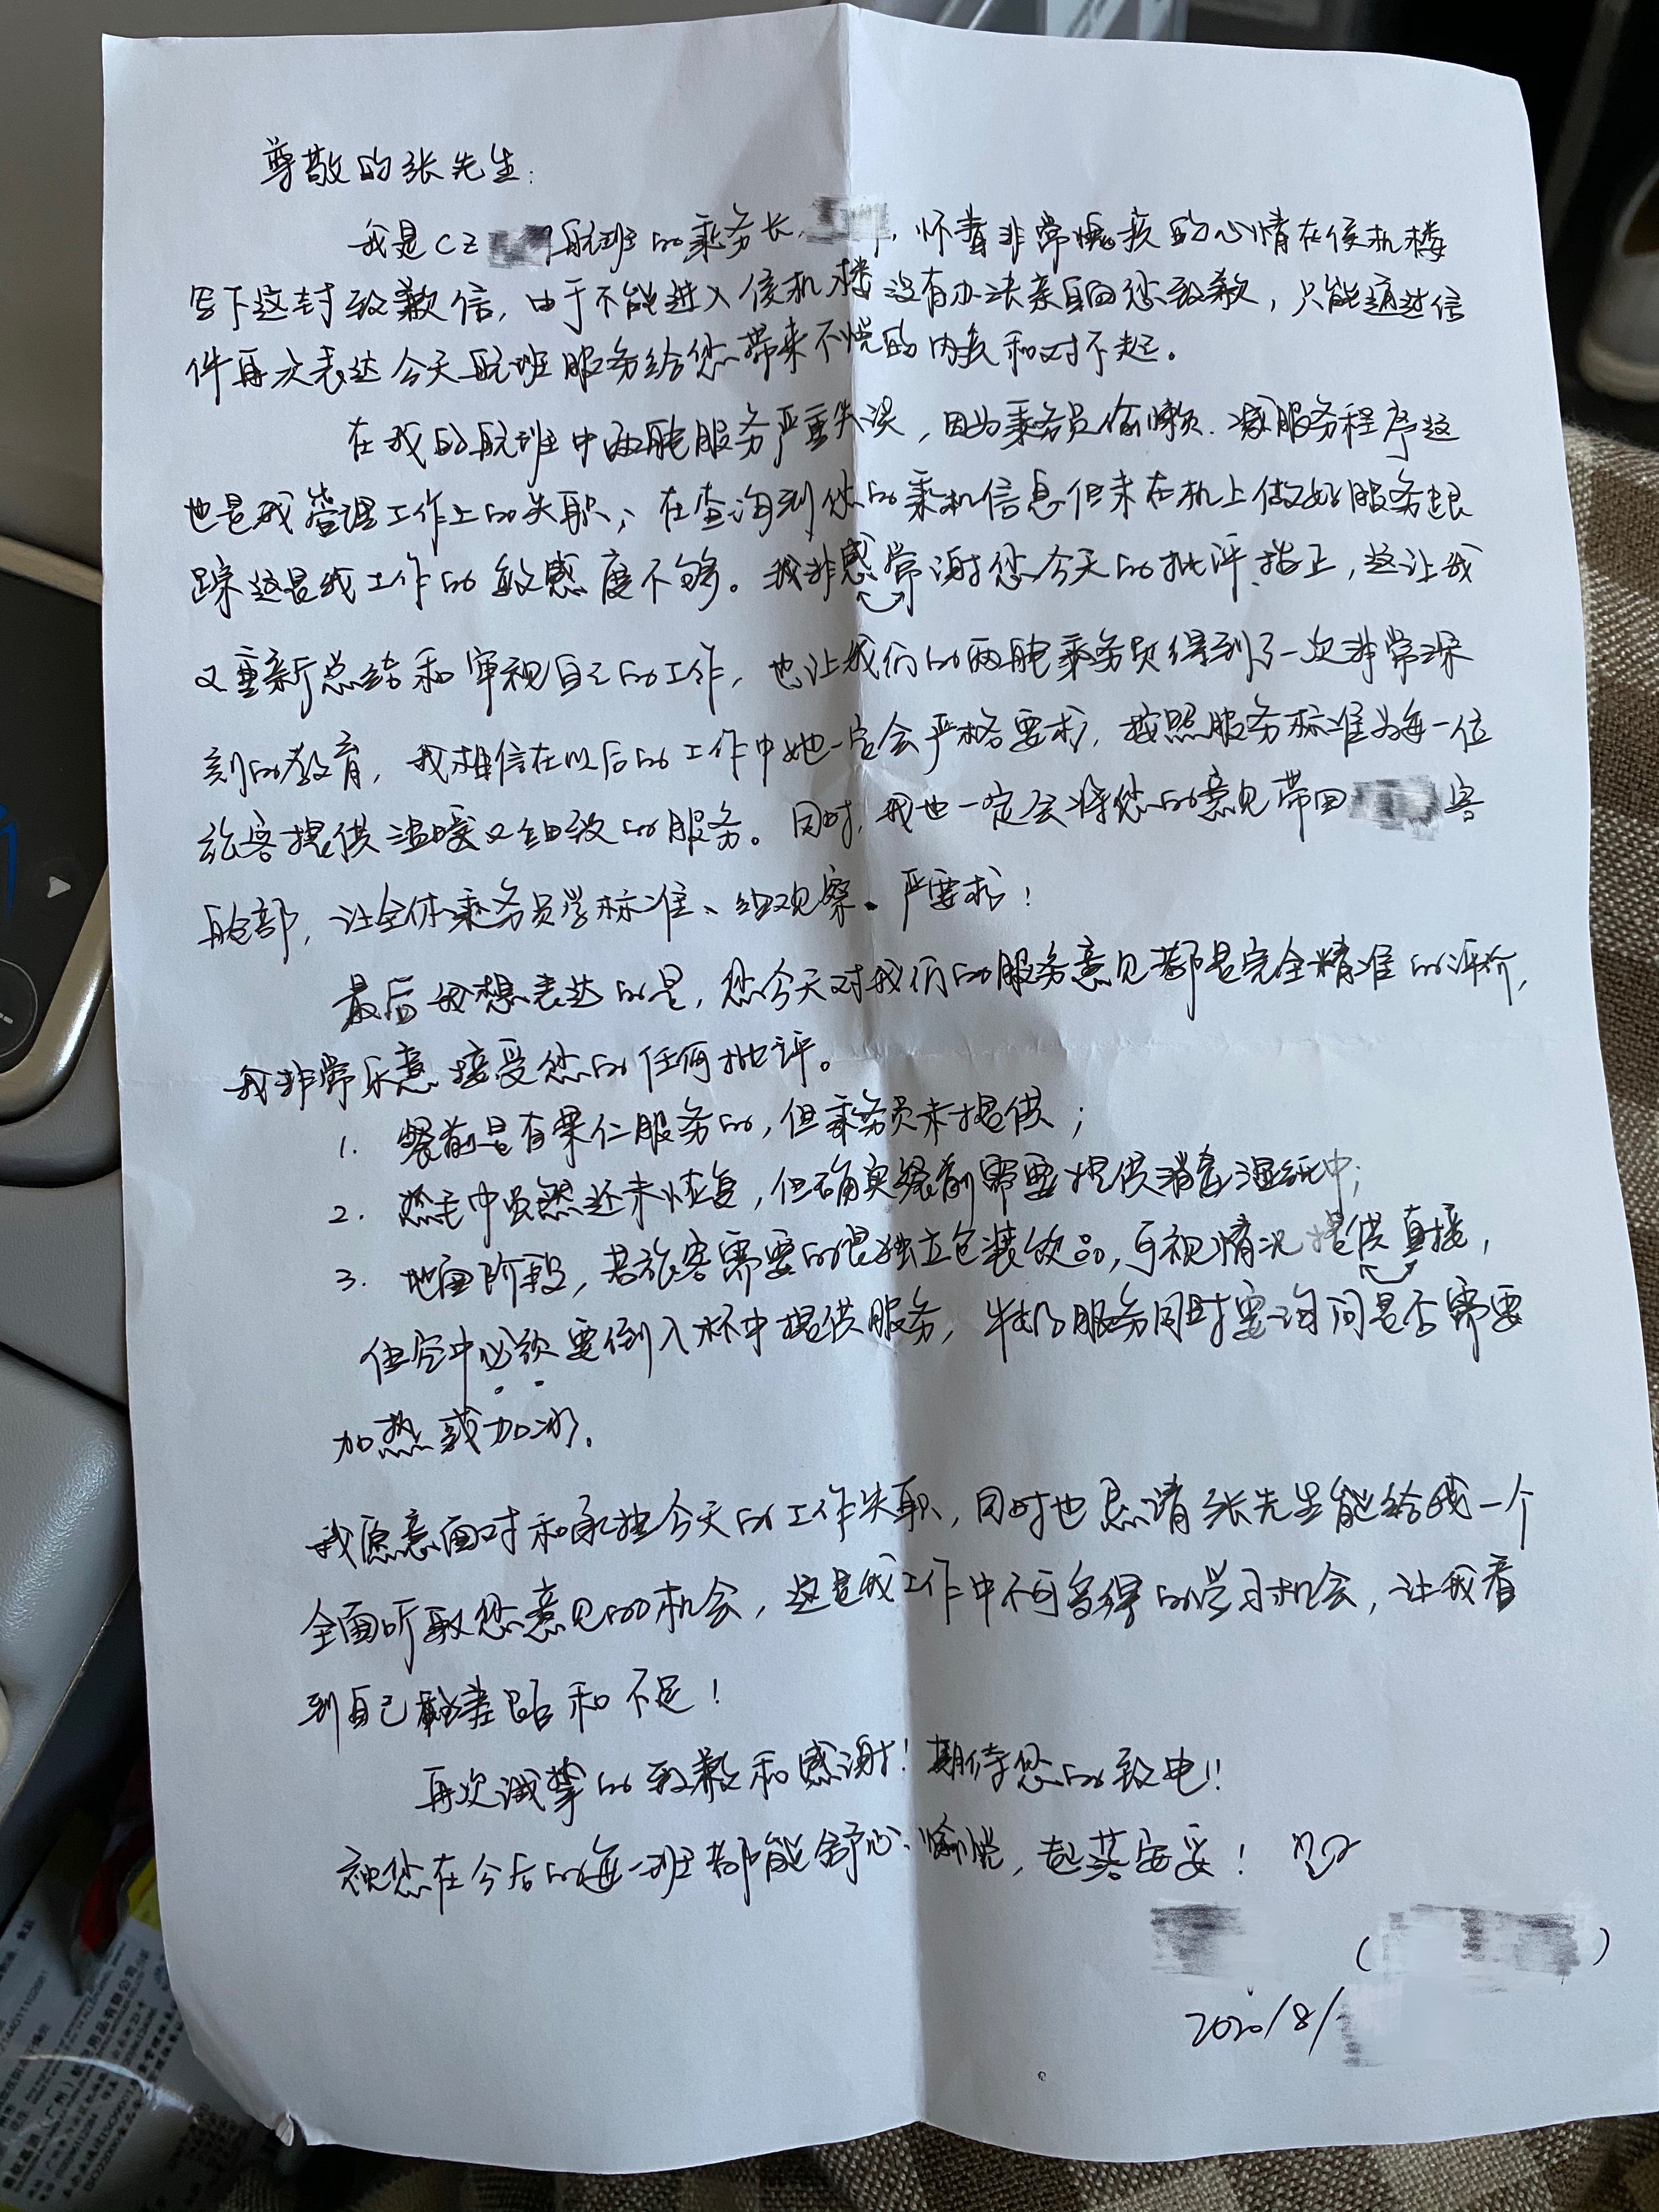 尊敬的张先生:
我是CZ 航班的乘务长, ,怀着非常愧疚的心情在侯机楼
写下这封致歉信,由于不能进入侯机楼没有办法亲自向您致歉,只能通过信
件再次表达今天航班服务给您带来不悦的内疚和对不起。
在我的航班中两舱服务严重失误,因为乘务员偷懒、减服务程序这
也是我管理工作上的失职;在查询到您的乘机信息但未在机上做好服务跟
踪这是我工作的敏感度不够。我非感常谢您今天的批评、指正,这让我
又重新总结和审视自己的工作,也让我们的两舱乘务员得到了一次非常深
刻的教育,我相信在以后的工作中她一定会严格要求,按照服务标准为每一位
旅客提供温暖又细致的服务。同时,我也一定会将您的意见带回 客
舱部,让全体乘务员学标准、细观察、严要求!
最后我想表达的是,您今天对我们的服务意见都是完全精准的评价,
我非常乐意接受您的任何批评。
1. 餐前是有果仁服务的,但乘务员未提供;
2. 热毛巾虽然还未恢复,但确实餐前需要提供消毒湿纸巾;
3. 地面阶段,若旅客需要的是独立包装饮品,可视情况提供直接,
但空中必须要倒入杯中提供服务,牛奶服务同时要询问是否需要
加热或加冰。
我愿意面对和承担今天的工作失职,同时也恳请张先生能给我一个
全面听取您意见的机会,这是我工作中不可多得的学习机会,让我看
到自己的差距和不足!
再次诚挚的致歉和感谢!期待您的致电!!
祝您在今后的每一班都能舒心、愉悦,起落安妥!
( )
2020/8/